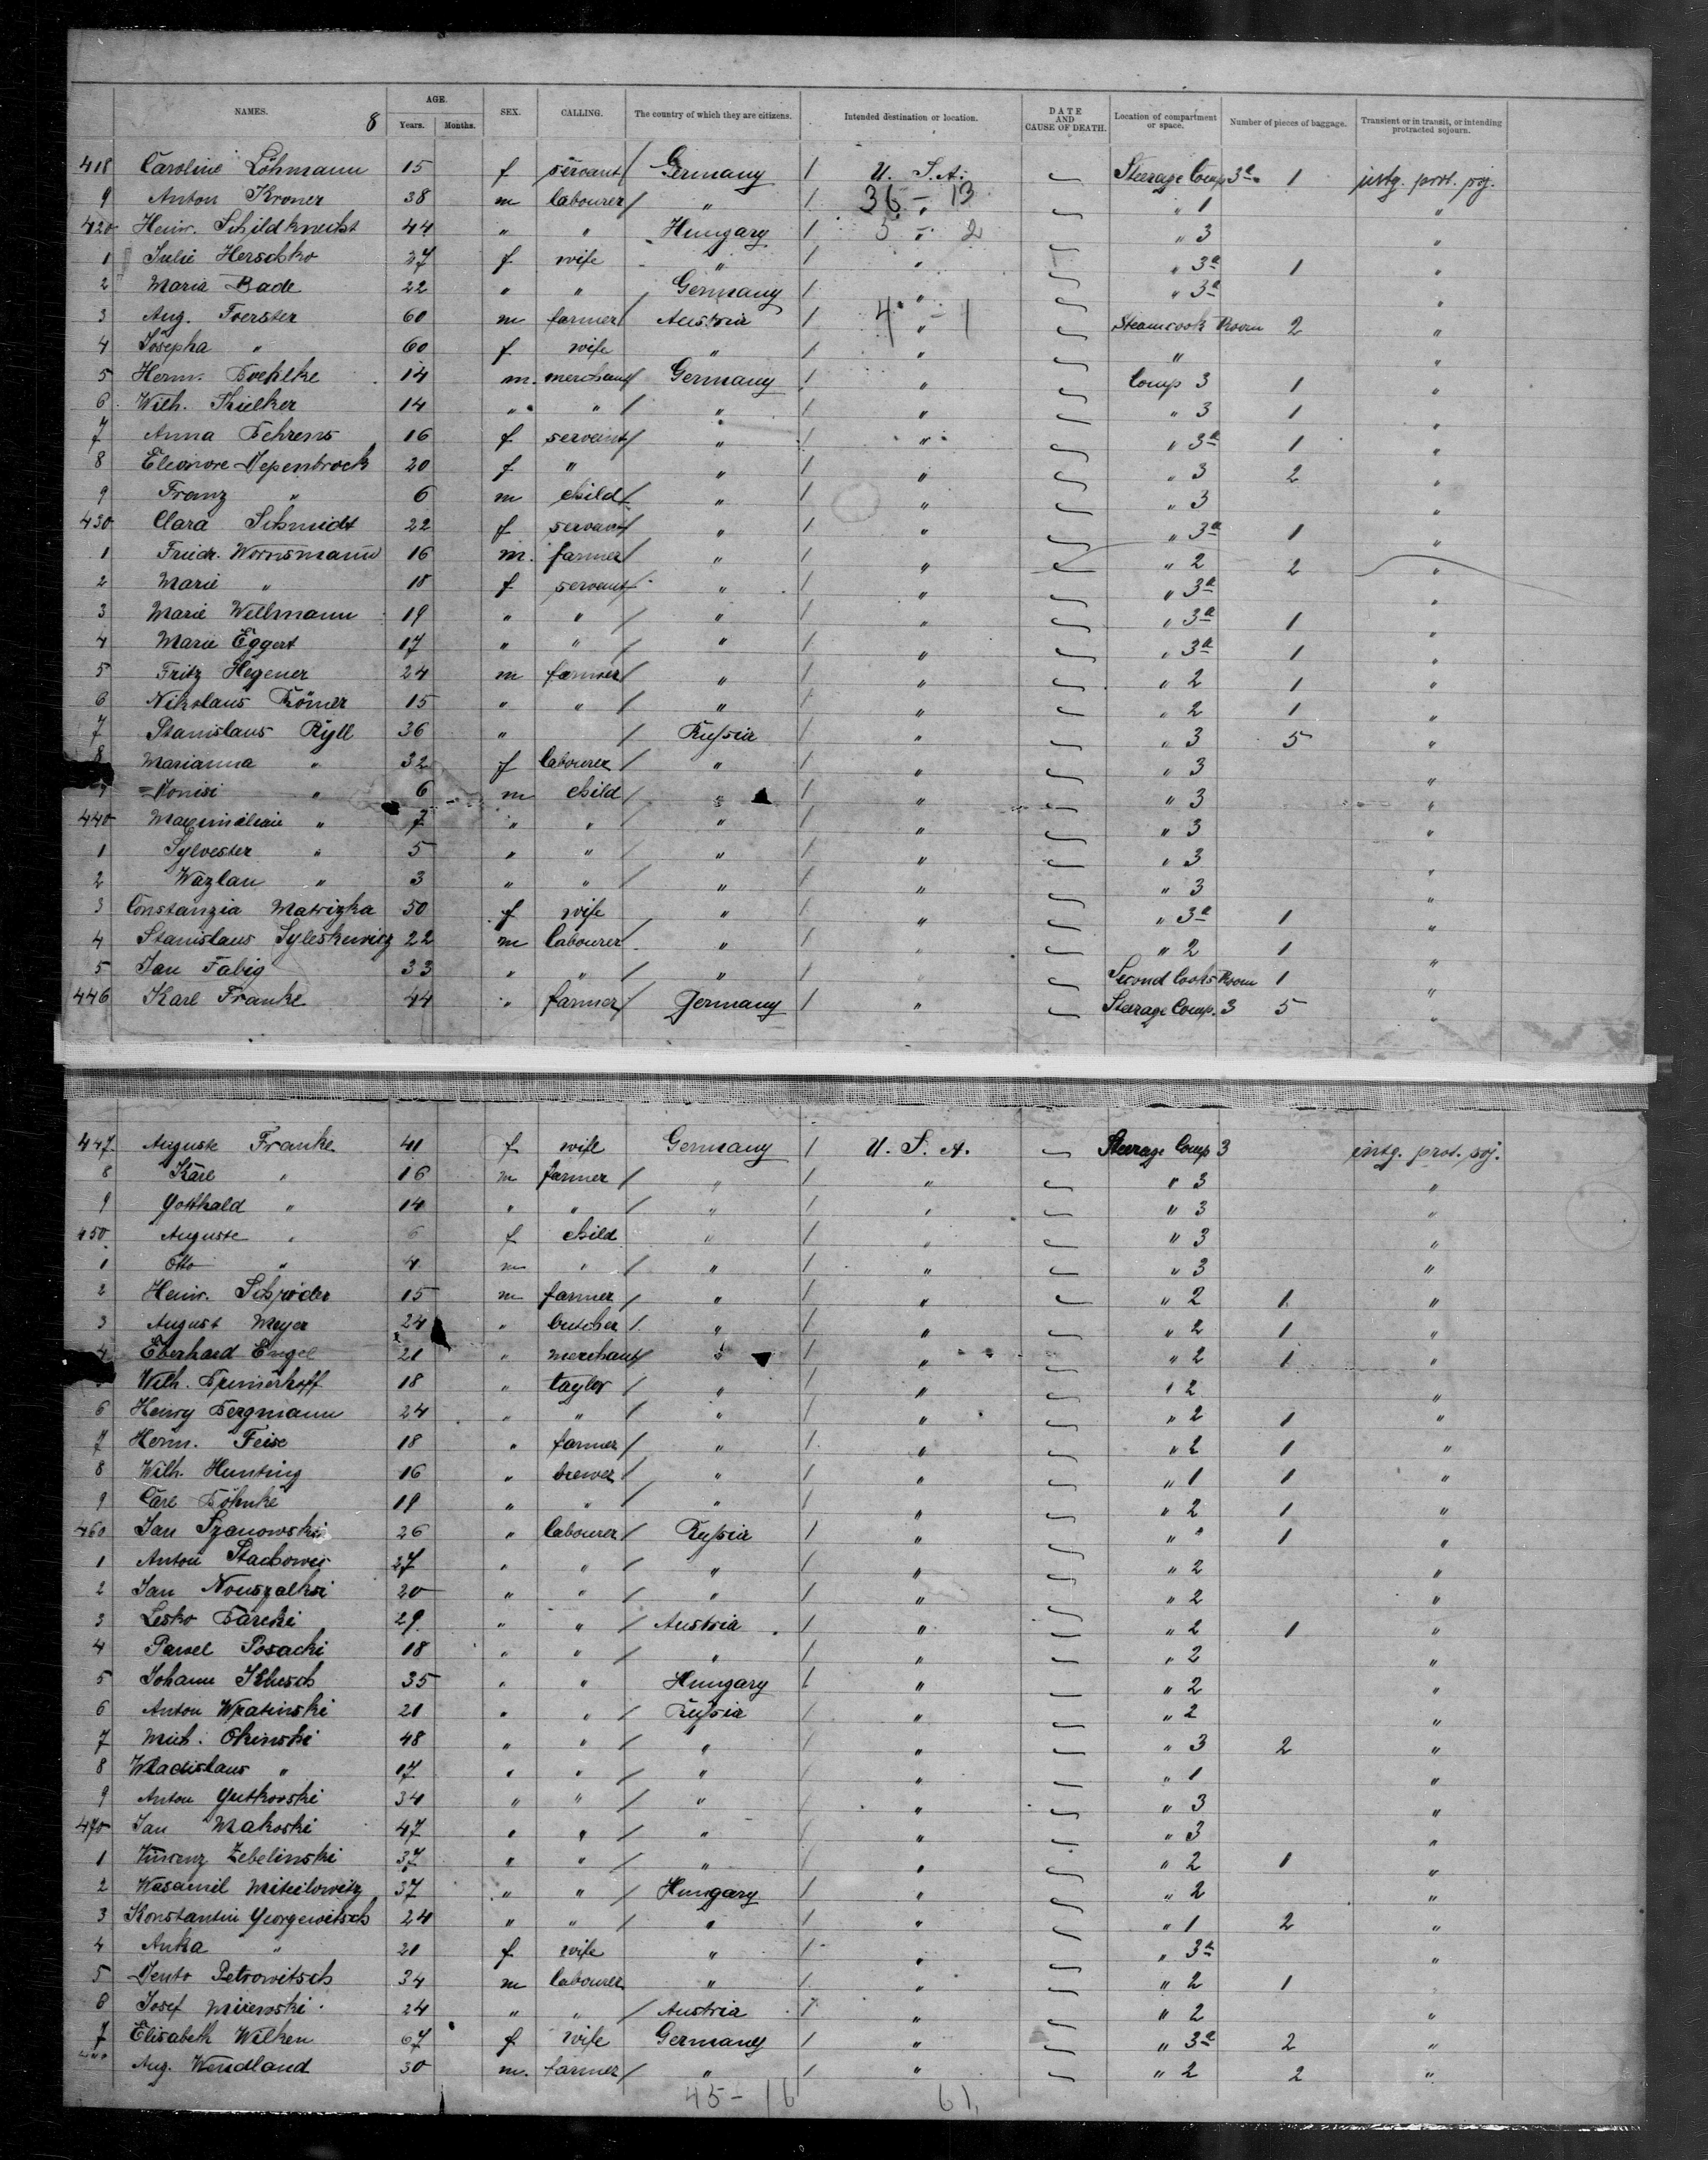 NAMES. AGE. Years. Months. SEX. CALLING. The country of which they are citizens. Intended destination or location. DATE AND CAUSE OF DEATH. Location of compartment or space. Number of pieces of baggage. Transient or in transit, or intending protracted sojourn.
8
418 Caroline Löhmann 15 f servant / Germany / U. S. A. Steerage Comp 3a 1 intg. prot. soj.
9 Anton Kroner 38 m labourer / " / 36 - 13 " 1 "
420 Heinr. Schildknecht 44 " " Hungary / 5 - 2 " 3 "
1 Julie Herschko 27 f wife " / " " 3a 1 "
2 Maria Bade 22 " " Germany / " " 3a "
3 Aug. Foerster 60 m farmer / Austria / 4 - 1 " Steamcook Room 2 "
4 Josepha " 60 f wife " / " " "
5 Herm. 14 m. merchant / Germany / " Comp 3 1 "
6 Wilh. Thielker 14 " " / " / " " 3 1 "
7 Anna Behrens 16 f servant / " / " " 3a 1 "
8 Eleonore Depenbrock 20 f " " / " " 3 2 "
9 Franz " 6 m child / " / " " 3 "
430 Clara Schmidt 22 f servant / " / " " 3a 1 "
1 Friedr. Wornsmann 16 m. farmer / " / " " 2 2 "
2 Marie " 18 f servant / " / " " 3a "
3 Marie Wellmann 19 " " / " / " " 3a 1 "
4 Marie Eggert 17 " " / " / " " 3a 1 "
5 Fritz Hegener 24 m farmer / " / " " 2 1 "
6 Nikolaus Römer 15 " " / " / " " 2 1 "
7 Stanislaus Ryll 36 " / Russia / " " 3 5 "
8 Marianna " 32 f labourer / " / " " 3 "
9 Donisi " 6 m child / " / " " 3 "
440 Maximilian " 7 " " / " / " " 3 "
1 Sylvester " 5 " " / " / " " 3 "
2 Wazlau " 3 " " / " / " " 3 "
3 Constanzia Matrizka 50 f wife " / " " 3a 1 "
4 Stanislaus Syleskewicz 22 m labourer " / " " 2 1 "
5 Jan Fabig 33 " " / " / " Second Cooks Room 1 "
446 Karl Franke 44 " farmer / Germany / " Steerage Comp. 3 5 "
447. Auguste Franke 41 f wife Germany / U. S. A. Steerage Comp 3 intg. prot. soj.
8 Karl " 16 m farmer / " / " " 3 "
9 Gotthald " 14 " " / " / " " 3 "
450 Auguste " 6 f child " / " " 3 "
1 Otto " 4 m " / " / " " 3 "
2 Heinr. Schröder 15 m farmer / " / " " 2 1 "
3 August Meyer 24 " butcher / " / " " 2 1 "
4 Eberhard Engel 21 " merchant / " / " " 2 1 "
Wilh. 18 " taylor / " / " " 2 "
6 Henry Bergmann 24 " " / " / " " 2 1 "
7 Herm. Feise 18 " farmer / " / " " 2 1 "
8 Wilh. Hunting 16 " brewer / " / " " 1 1 "
9 Carl Böhnke 19 " " / " / " " 2 1 "
460 Jan Szanowski 26 " labourer / Russia / " " " 1 "
1 Anton 27 " " / " / " " 2 "
2 Jan 20 " " / " / " " 2 "
3 Lesko Bareki 29 " " / Austria / " " 2 1 "
4 Pawel Posacki 18 " " / " / " " 2 "
5 Johann 35 " " Hungary / " " 2 "
6 Anton Wratinski 21 " " / Russia / " " 2 "
7 Mich. Okinski 48 " " / " / " " 3 2 "
8 Wladislaus " 17 " " / " / " " 1 "
9 Anton Gutkowski 34 " " / " / " " 3 "
470 Jan Makoski 47 " " / " / " " 3 "
1 Vincenz Zebelinski 37 " " / " / " " 2 1 "
2 Wasamil Miteilowitz 37 " " / Hungary / " " 2 "
3 Konstantin Georgewitsch 24 " " / " / " " 1 2 "
4 Anka " 21 f wife " / " " 3a "
5 Dento Petrowitsch 34 m labourer " / " " 2 1 "
6 Josef 24 " " / Austria / " " 2 "
7 Elisabeth Wilken 67 f wife Germany / " " 3a 2 "
Aug. Wendland 30 m. farmer / " / " " 2 2 "
45 - 16 61,